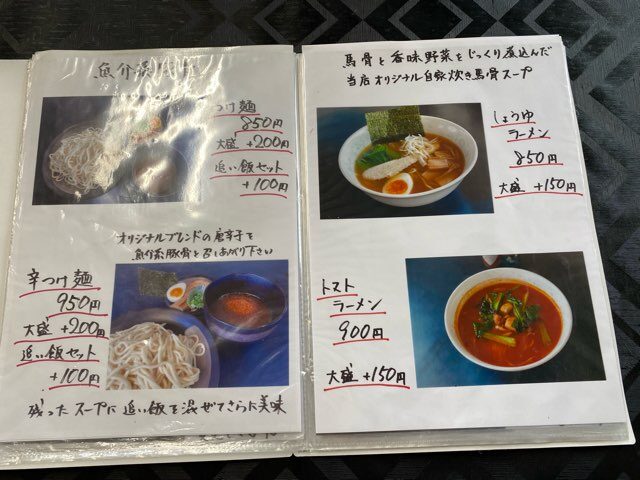 魚介系豚骨
つけ麺
850円
大盛 +200円
追い飯セット
+100円
オリジナルブレンドの唐辛子を
魚介系豚骨と召し上がり下さい
辛つけ麺
950円
大盛 +200円
追い飯セット
+100円
残ったスープに追い飯を混ぜてさらに美味
馬骨と香味野菜をじっくり煮込んだ
当店オリジナル自家炊き馬骨スープ
しょうゆ
ラーメン
850円
大盛 +150円
トマト
ラーメン
900円
大盛 +150円